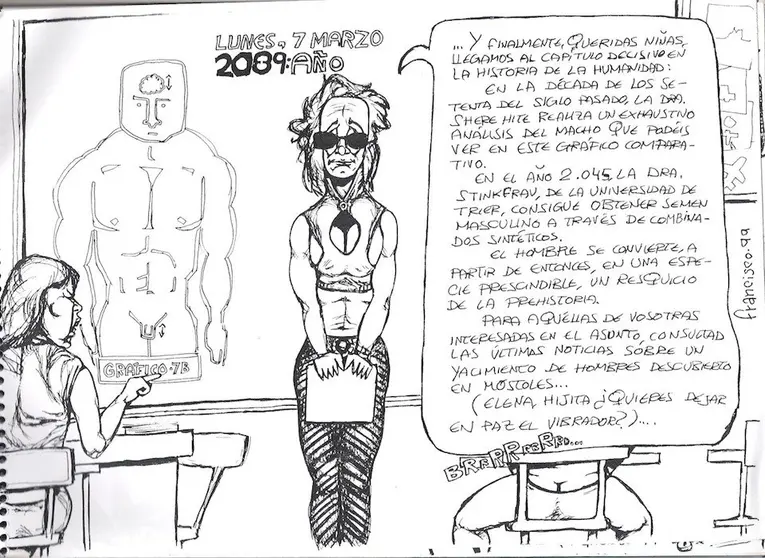 LUNES, 7 MARZO
2089:AÑO
... Y FINALMENTE, QUERIDAS NIÑAS,
LLEGAMOS AL CAPÍTULO DECISIVO EN
LA HISTORIA DE LA HUMANIDAD:
EN LA DÉCADA DE LOS SE-
TENTA DEL SIGLO PASADO, LA DRA.
SHERE HITE REALIZA UN EXHAUSTIVO
ANÁLISIS DEL MACHO QUE PODÉIS
VER EN ESTE GRÁFICO COMPARA-
TIVO.
EN EL AÑO 2.045, LA DRA.
STINKFRAU, DE LA UNIVERSIDAD DE
TRIER, CONSIGUE OBTENER SEMEN
MASCULINO A TRAVÉS DE COMBINA-
DOS SINTÉTICOS.
EL HOMBRE SE CONVIERTE, A
PARTIR DE ENTONCES, EN UNA ESPE-
CIE PRESCINDIBLE, UN RESQUICIO
DE LA PREHISTORIA.
PARA AQUÉLLAS DE VOSOTRAS
INTERESADAS EN EL ASUNTO, CONSULTAD
LAS ÚLTIMAS NOTICIAS SOBRE UN
YACIMIENTO DE HOMBRES DESCUBIERTO
EN MÓSTOLES...
(ELENA, HIJITA ¿QUIERES DEJAR
EN PAZ EL VIBRADOR?)....
GRÁFICO-7B
francisco.99